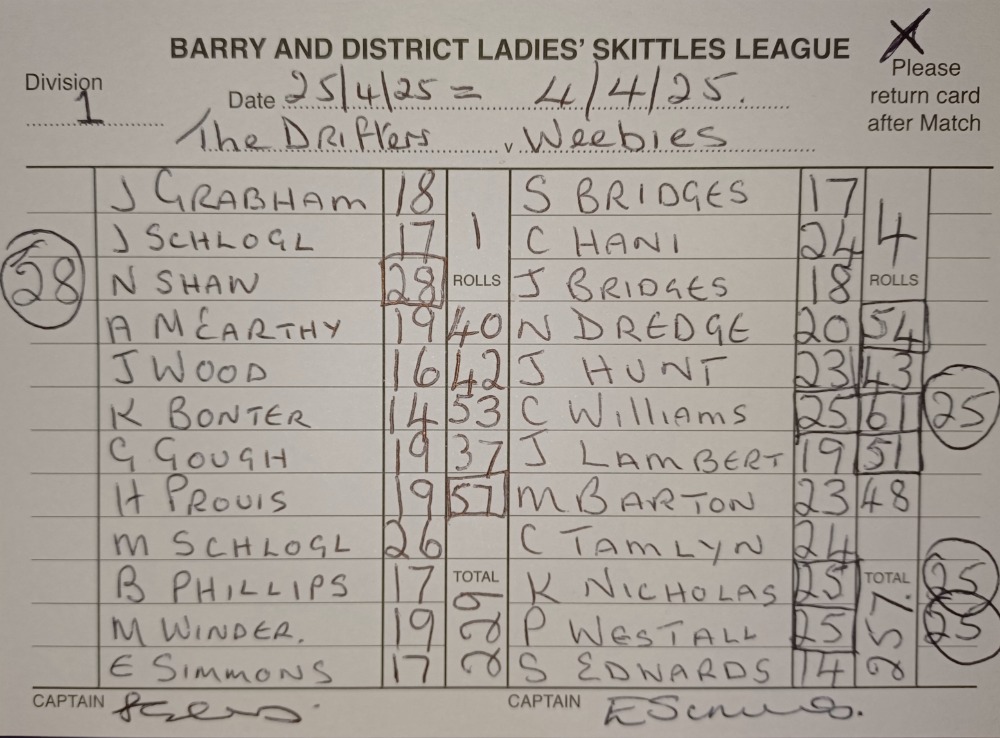 BARRY AND DISTRICT LADIES' SKITTLES LEAGUE X
Division 1
Date 25/4/25 = 4/4/25.
Please
return card
after Match
The Drifters v Weebies
J GRABHAM 18 S BRIDGES 17
J SCHLOGL 17 1 C HANI 24 4
28 N SHAW 28 ROLLS J BRIDGES 18 ROLLS
A MCEARTHY 19 40 N DREDGE 20 54
J WOOD 16 42 J HUNT 23 43
K BONTER 14 53 C WILLIAMS 25 61 25
G GOUGH 19 37 J LAMBERT 19 51
H PROUIS 19 57 M BARTON 23 48
M SCHLOGL 26 C TAMLYN 24
B PHILLIPS 17 TOTAL K NICHOLAS 25 TOTAL 25
M WINDER. 19 229 P WESTALL 25 257. 25
E SIMMONS 17 S EDWARDS 14
CAPTAIN CAPTAIN